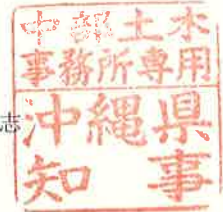 中部土木
事務所専用
沖縄県
知事
志